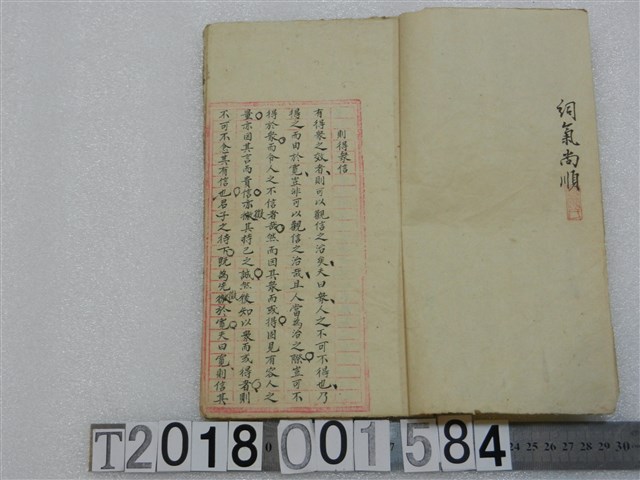 詞氣尚順
則得衆信
有得衆之效者則可以觀信之治矣夫曰衆人之不可不得也乃
得之而由於寬豈非可以觀信之治哉且人當為治之際豈可不
得於衆而令人之不信者哉然而因其衆而或得因見有容人之
量亦因其言而貴信亦擬其待己之誠然後知以衆而或得者則
不可不念其有信也君子之待下既為先擬於寬夫曰寬則信其
T2018001584
24 25 26 27 28 29 30